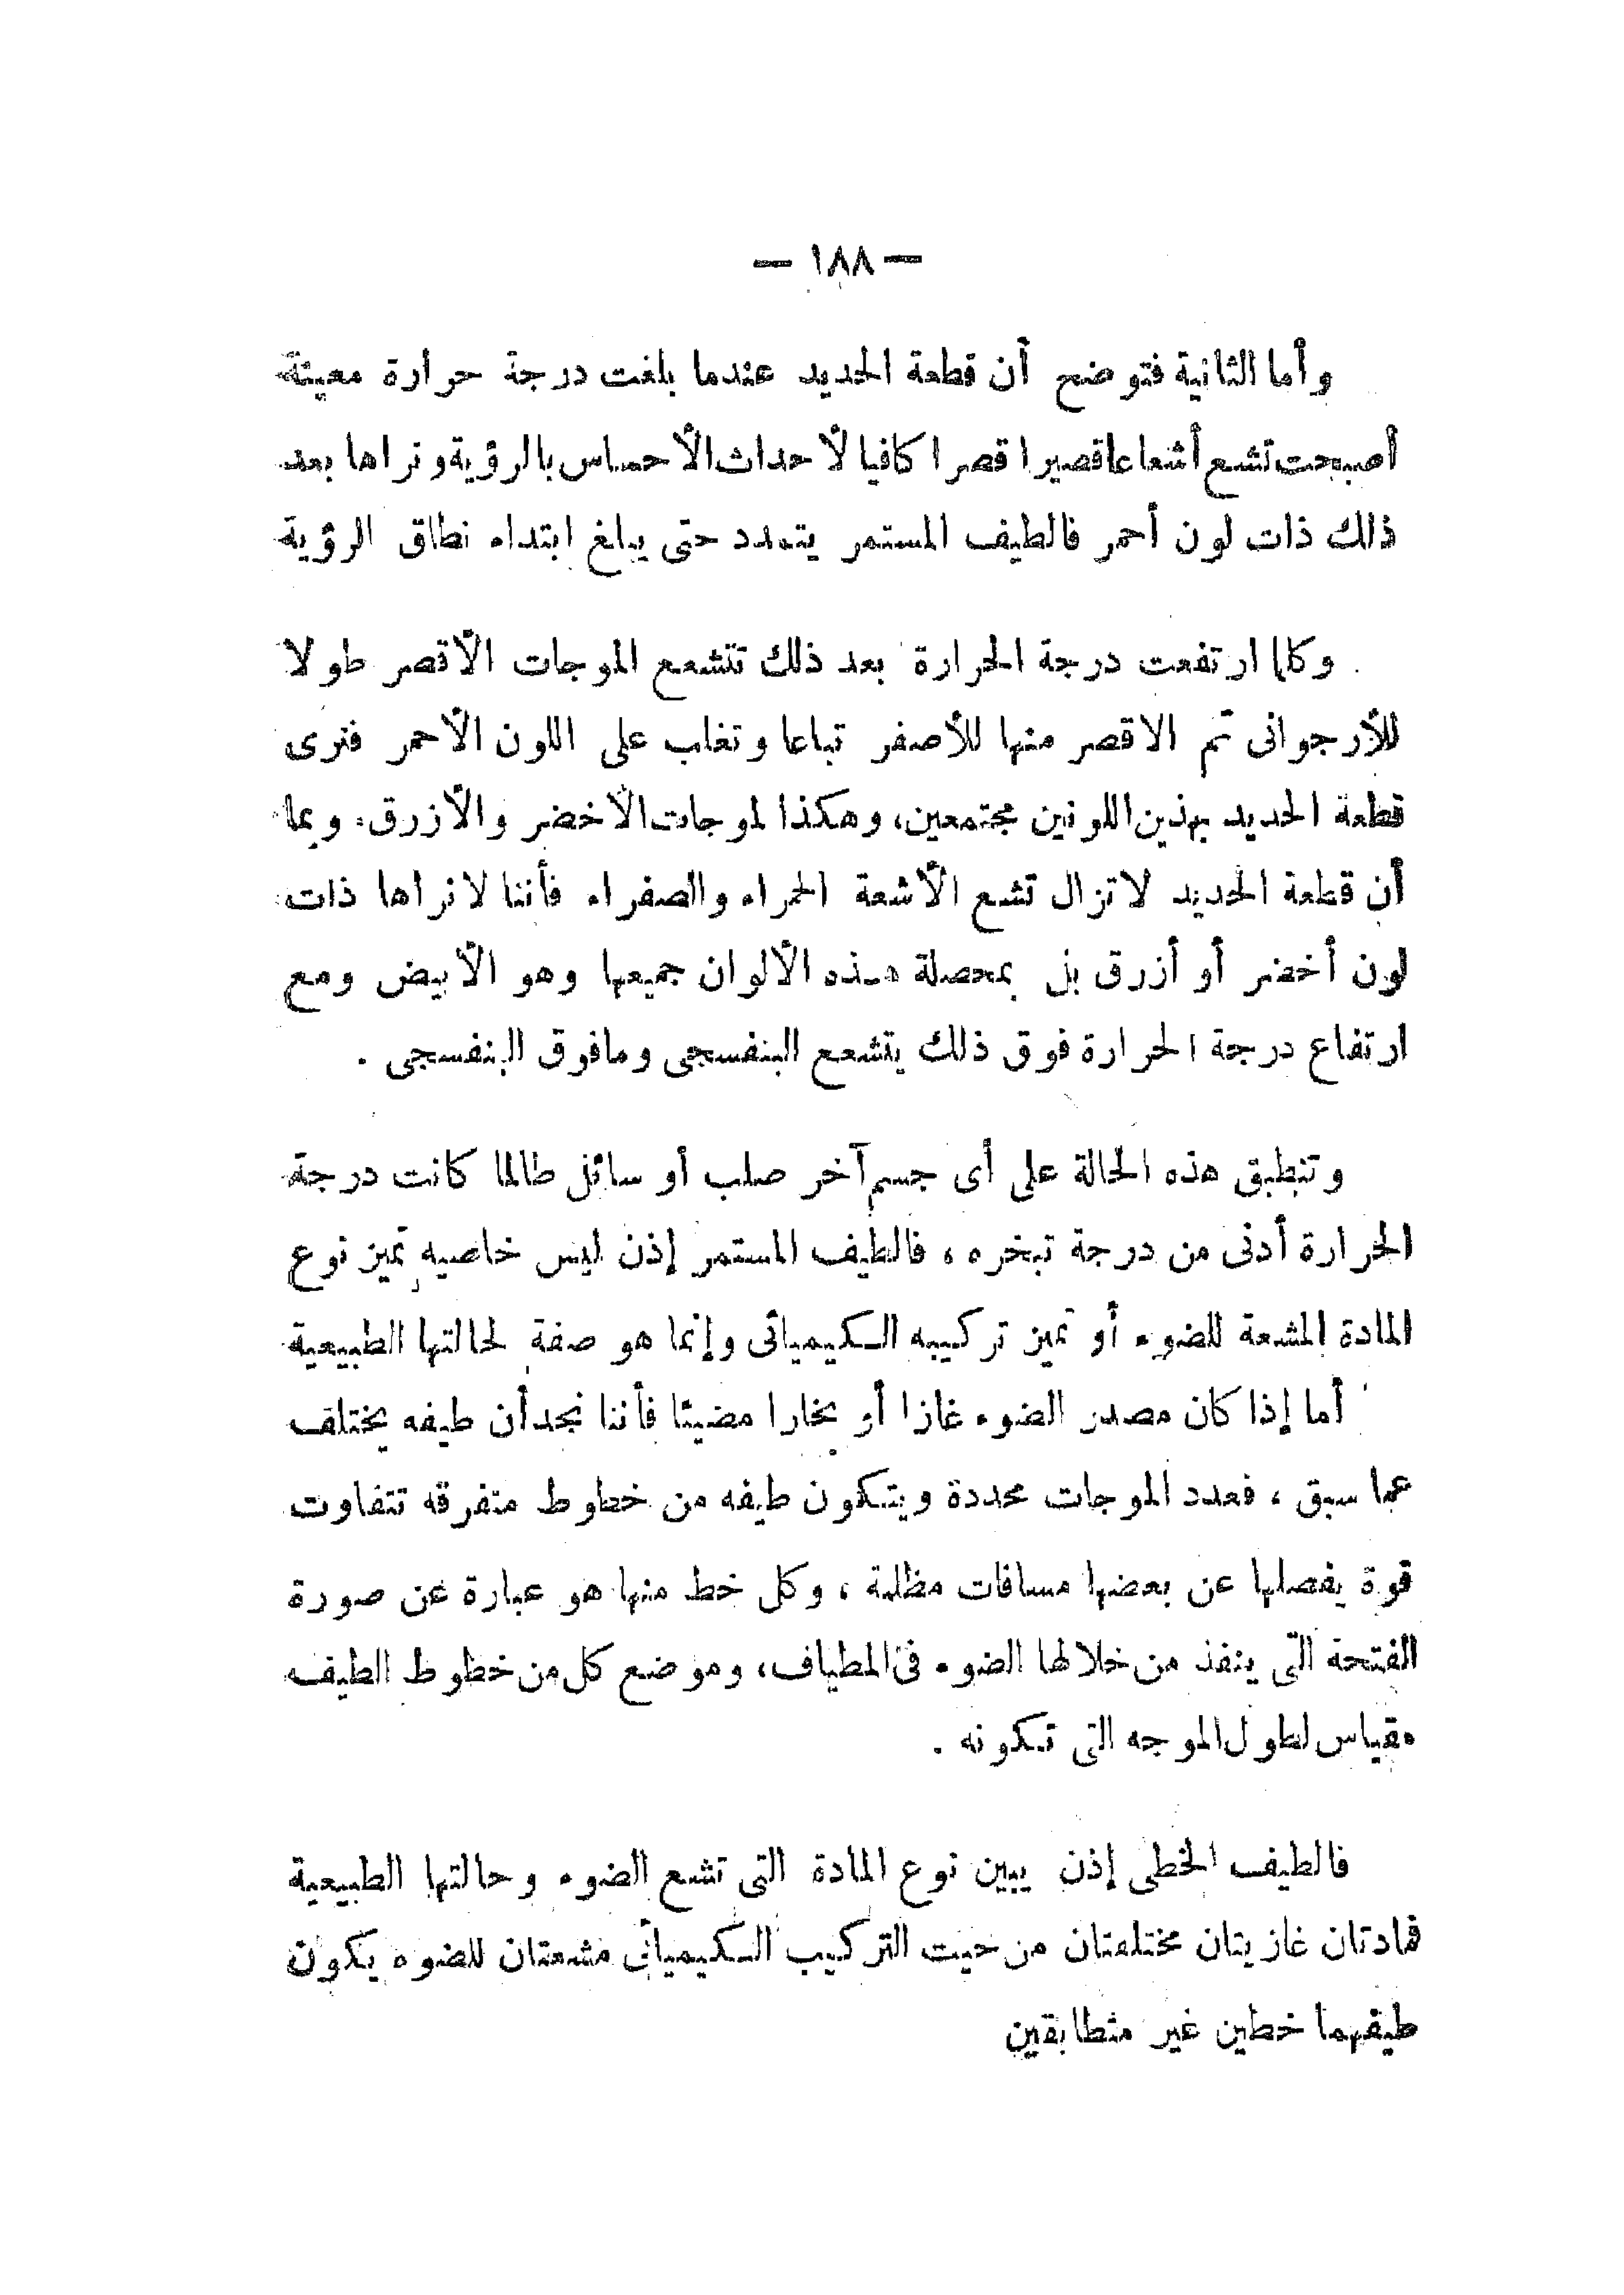 — ١٨٨ —
وأما الثانية فتوضح أن قطعة الحديد عندما بلغت درجة حرارة معينة
أصبحت تشع أشعاعا قصيرا قصرا كافيا لأحداث الأحساس بالرؤية ونراها بعد
ذلك ذات لون أحمر فالطيف المستمر يتمدد حتى يبلغ ابتداء نطاق الرؤية
وكلما ارتفعت درجة الحرارة بعد ذلك تتشعع الموجات الأقصر طولا
للأرجوانى ثم الاقصر منها للأصفر تباعا وتغلب على اللون الأحمر فنرى
قطعة الحديد بهذين اللونين مجتمعين، وهكذا لموجات الأخضر والأزرق. وبما
أن قطعة الحديد لا تزال تشع الأشعة الحمراء والصفراء فأننا لا نراها ذات
لون أخضر أو أزرق بل بمحصلة هذه الألوان جميعها وهو الأبيض ومع
ارتفاع درجة الحرارة فوق ذلك يتشعع البنفسجى ومافوق البنفسجى .
وتنطبق هذه الحالة على أى جسم آخر صلب أو سائل طالما كانت درجة
الحرارة أدنى من درجة تبخره ، فالطيف المستمر إذن ليس خاصيه تميز نوع
المادة المشعة للضوء أو تميز تركيبه الكيميائى وإنما هو صفة لحالتها الطبيعية
أما إذا كان مصدر الضوء غازا أو بخارا مضيئا فأننا نجد أن طيفه يختلف
عما سبق ، فعدد الموجات محددة ويتكون طيفه من خطوط متفرقه تتفاوت
قوة يفصلها عن بعضها مسافات مظلمة ، وكل خط منها هو عبارة عن صورة
الفتحة التى ينفذ من خلالها الضوء فى المطياف، وموضع كل من خطوط الطيف
مقياس لطول الموجه التى تكونه .
فالطيف الخطى إذن يبين نوع المادة التى تشع الضوء وحالتها الطبيعية
فمادتان غازيتان مختلفتان من حيت التركيب الكيميائى مشعتان للضوء يكون
طيفهما خطين غير متطابقين